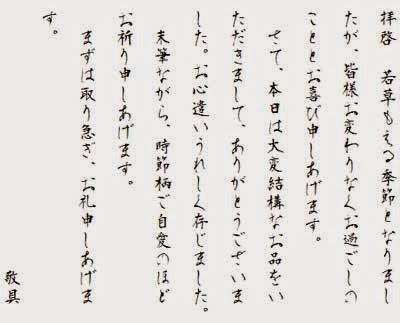 拝啓　若草もえる季節となりまし
たが、皆様お変わりなくお過ごしの
こととお喜び申しあげます。
さて、本日は大変結構なお品をい
ただきまして、ありがとうございま
した。お心遣いうれしく存じました。
末筆ながら、時節柄ご自愛のほど
お祈り申しあげます。
まずは取り急ぎ、お礼申しあげま
す。
敬具